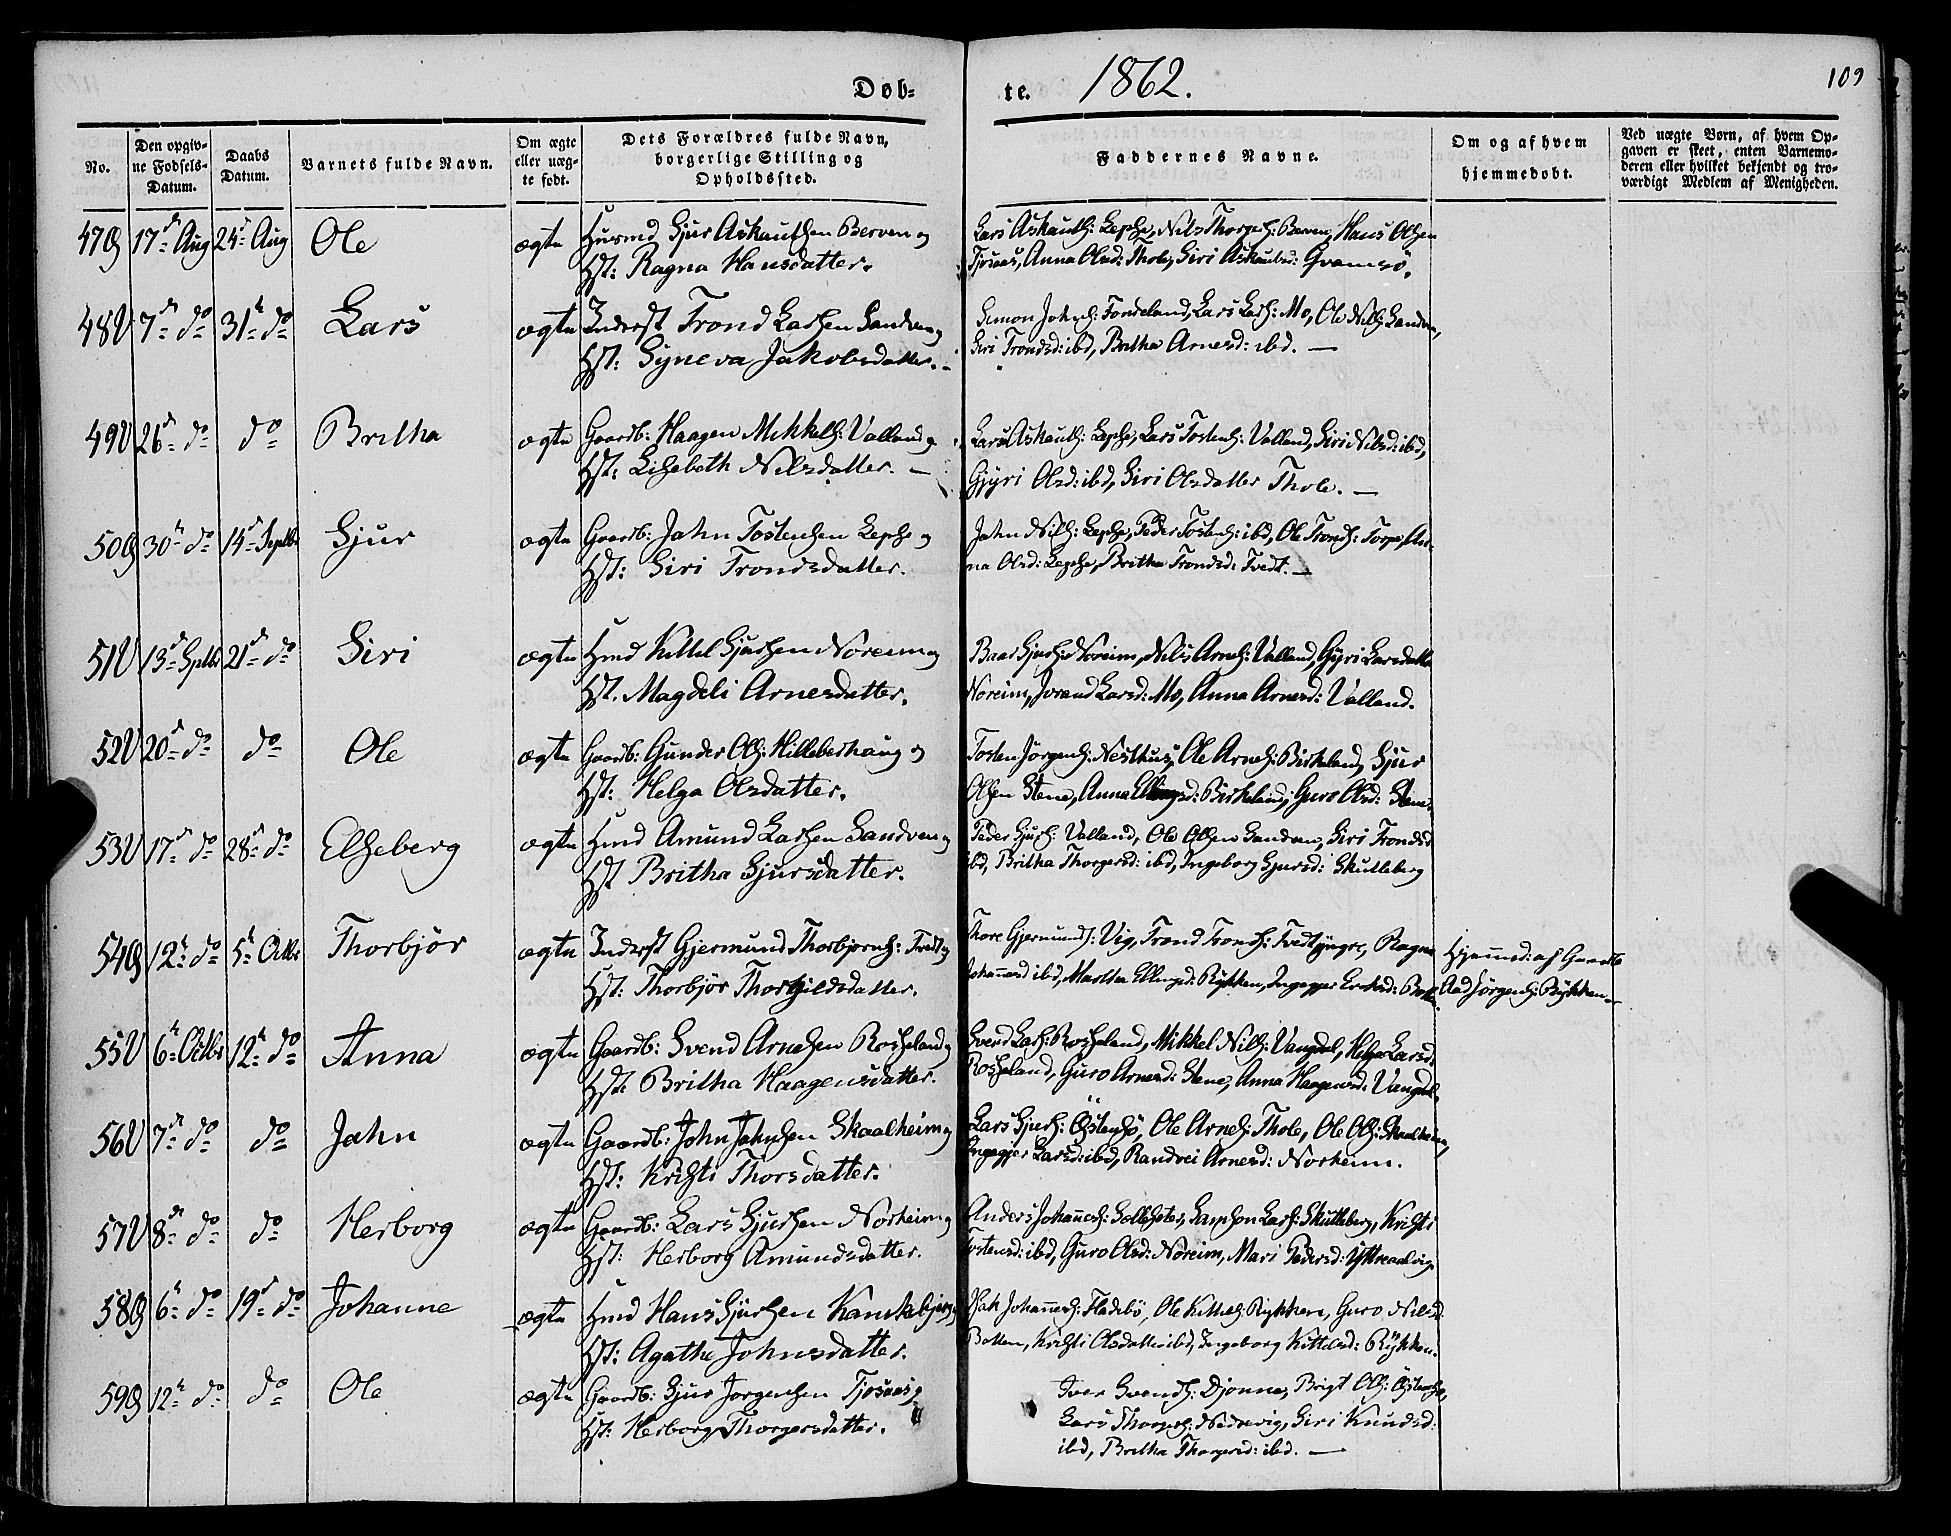 Døb-
te. 1862.
109
No.
Den opgiv-
ne Fødsels-
Datum.
Daabs
Datum.
Barnets fulde Navn.
Om ægte
eller uæg-
te født.
Dets Forældres fulde Navn,
borgerlige Stilling og
Opholdssted.
Faddernes Navne.
Om og af hvem
hjemmedøbt.
Ved uægte Børn, af hvem Op-
gaven er skeet, enten Barnemo-
deren eller hvilket bekjendt og tro-
værdigt Medlem af Menigheden.
47 17de Aug 24de Aug Ole ægte Husmd Sjur Askautsen Berven og
Hst: Ragna Hansdatter.
Lars Askauts: Lepse, Nils Thorgs: Berven, Hans Olsen
Tjosaas, Anna Olsd: Thole, Siri Askautsd: Qvamsø.
48 V 7de do 31te do Lars ægte Inderst Trond Larsen Sandven og
Hst: Syneva Jakobsdatter.
Simon Johns: Fondeland, Lars Lars: Mo, Ole Nils: Sandven,
Siri Trondsd: ibd, Britha Arnesd: ibd. —
49 V 26de do do Britha ægte Gaardb: Haagen Mikkels: Valland og
Hst: Lisebeth Nilsdatter. —
Lars Askauts: Lepse, Lars Tostens: Valland, Siri Nilsd: ibd,
Gjyri Olsd: ibd, Siri Olsdatter Thole. —
50 30te do 14de Septbr Sjur ægte Gaardb: Jahn Tostensen Lepse og
Hst: Siri Trondsdatter.
Jahn Nils: Lepse, Peder Tostens: ibd, Ole Tronds: Torpe, An-
na Olsd: Lepse, Britha Trondsd: Tvedt. —
51 V 13de Septbr 21de do Siri ægte Hmd Kittel Sjursen Noreim og
Hst. Magdeli Arnesdatter.
Baar Sjurs: Noreim, Nils Arnes: Valland, Gyri Larsdatter
Noreim, Jorand Larsd: Mo, Anna Arnesd: Valland.
52 V 20de do do Ole ægte Gaardb: Gunder Ols: Hilleberhaug og
Hst: Helga Olsdatter.
Tosten Jørgens: Nesthus, Ole Arnes: Birkeland, Sjur
Olsen Stene, Anna Ellingsd: Birkeland, Guro Olsd: Stene.
53 V 17de do 28de do Elseberg ægte Hmd Amund Larsen Sandven og
Hst Britha Sjursdatter.
Peder Sjurs: Valland, Ole Olsen Sandven, Siri Trondsd
ibd, Britha Thorgersd: ibd, Ingeborg Sjursd: Skutleberg
54 12te do 5te Octbr Thorbjør ægte Inderst Gjermund Thorbjørns: Tvedt og
Hst: Thorbjør Thorgildsdatter.
Thore Gjermunds: Vig, Trond Tronds: Tvedt yngre, Ragna
Johannesd ibd, Martha Ellingsd: Rykken,
Hjemmed: af Gaardb:
Aad Jørgens: Rykken
55 V 6te Octbr 12te do Anna ægte Gaardb: Svend Arnesen Rosseland og
Hst: Britha Haagensdatter.
Sverd Lars: Rosseland, Mikkel Nils: Vangdal, Helga Larsd:
Rosseland, Guro Arnesd: Stene, Anna Haagensd: Vangdal.
56 V 7de do do Jahn ægte Gaardb: John Johnsen Skaalheim og
Hst: Kristi Thorsdatter.
Lars Sjurs: Østensø, Ole Arnes: Thole, Ole Ols: Skaalheim,
Ingegjer Larsd: ibd, Randvei Arnesd: Norheim.
57 V 8de do do Herborg ægte Gaardb: Lars Sjursen Norheim og
Hst: Herborg Amundsdatter.
Anders Johannes: Sollesetes, Samson Lars: Skutleberg, Kristi
Tostensd: ibd, Guro Olsd: Noreim, Mari Pedersd:
58 6te do 19de do Johanne ægte Hmd Hans Sjursen
Hst: Agathe Johnsdatter.
Isak Johannes: Fladebø, Ole Kittels: Rykken, Guro Nilsd:
Botten, Kristi Olsdatter ibd, Ingeborg Kittelsd: Rykken.
59 12te do do Ole ægte Gaardb: Sjur Jørgensen Tjosaas og
Hst: Herborg Thorgersdatter.
Iver Svends: Djønne, Brigt Ols: Østensø,
Lars Thorgs: Nedrevig, Siri Knudsd:
ibd, Britha Thorgersd: ibd. —